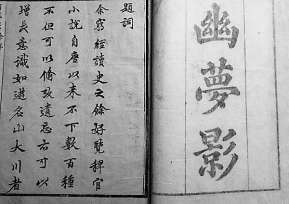 幽夢影
題詞
余窮經讀史之餘好覽稗官
小說自唐以來不下數百種
不但可以備攷遺忘亦可以
增長意識如遊名山大川者